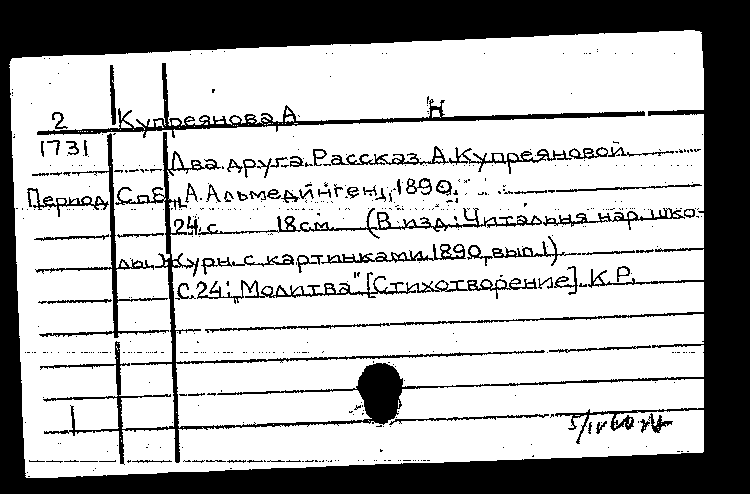 2 Купреянова, А Н
1731
Два друга. Рассказ А. Купреяновой.
Период. Спб., А. Альмединген, 1890.
24 с. 18 см. (В изд.: Читальня нар. шко-
лы. Журн. с картинками. 1890, вып. 1)
с. 24: "Молитва" [Стихотворение]. К.Р.
1